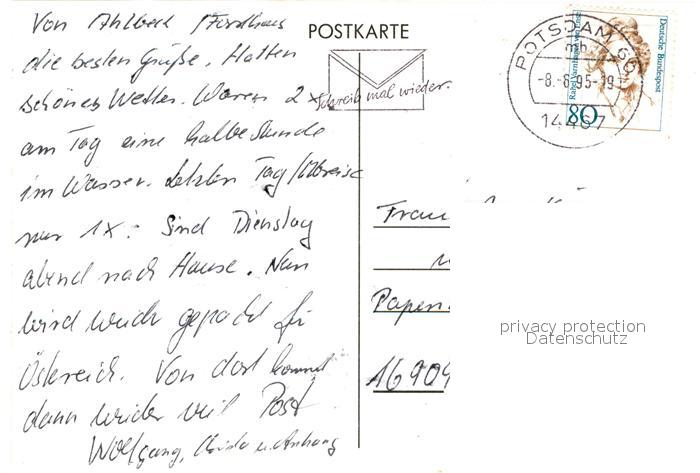 Von Ahlbeck / Forsthaus
die besten Grüße. Hatten
schönes Wetter. Waren 2x
am Tag eine halbe Stunde
im Wasser. Letzten Tag / Abreise
nur 1x. Sind Dienstag
abend nach Hause. Nun
wird wieder gepackt für
Östereich. Von dort kommt
dann wieder viel Post
Wolfgang, Christa u. Anhang
POSTKARTE
Schreib mal wieder.
POTSDAM 66
mb
-8.-8.95-19
14467
Deutsche Bundespost
Rahel Varnhagen von Ense
80
Frau
Papen
16909
privacy protection
Datenschutz